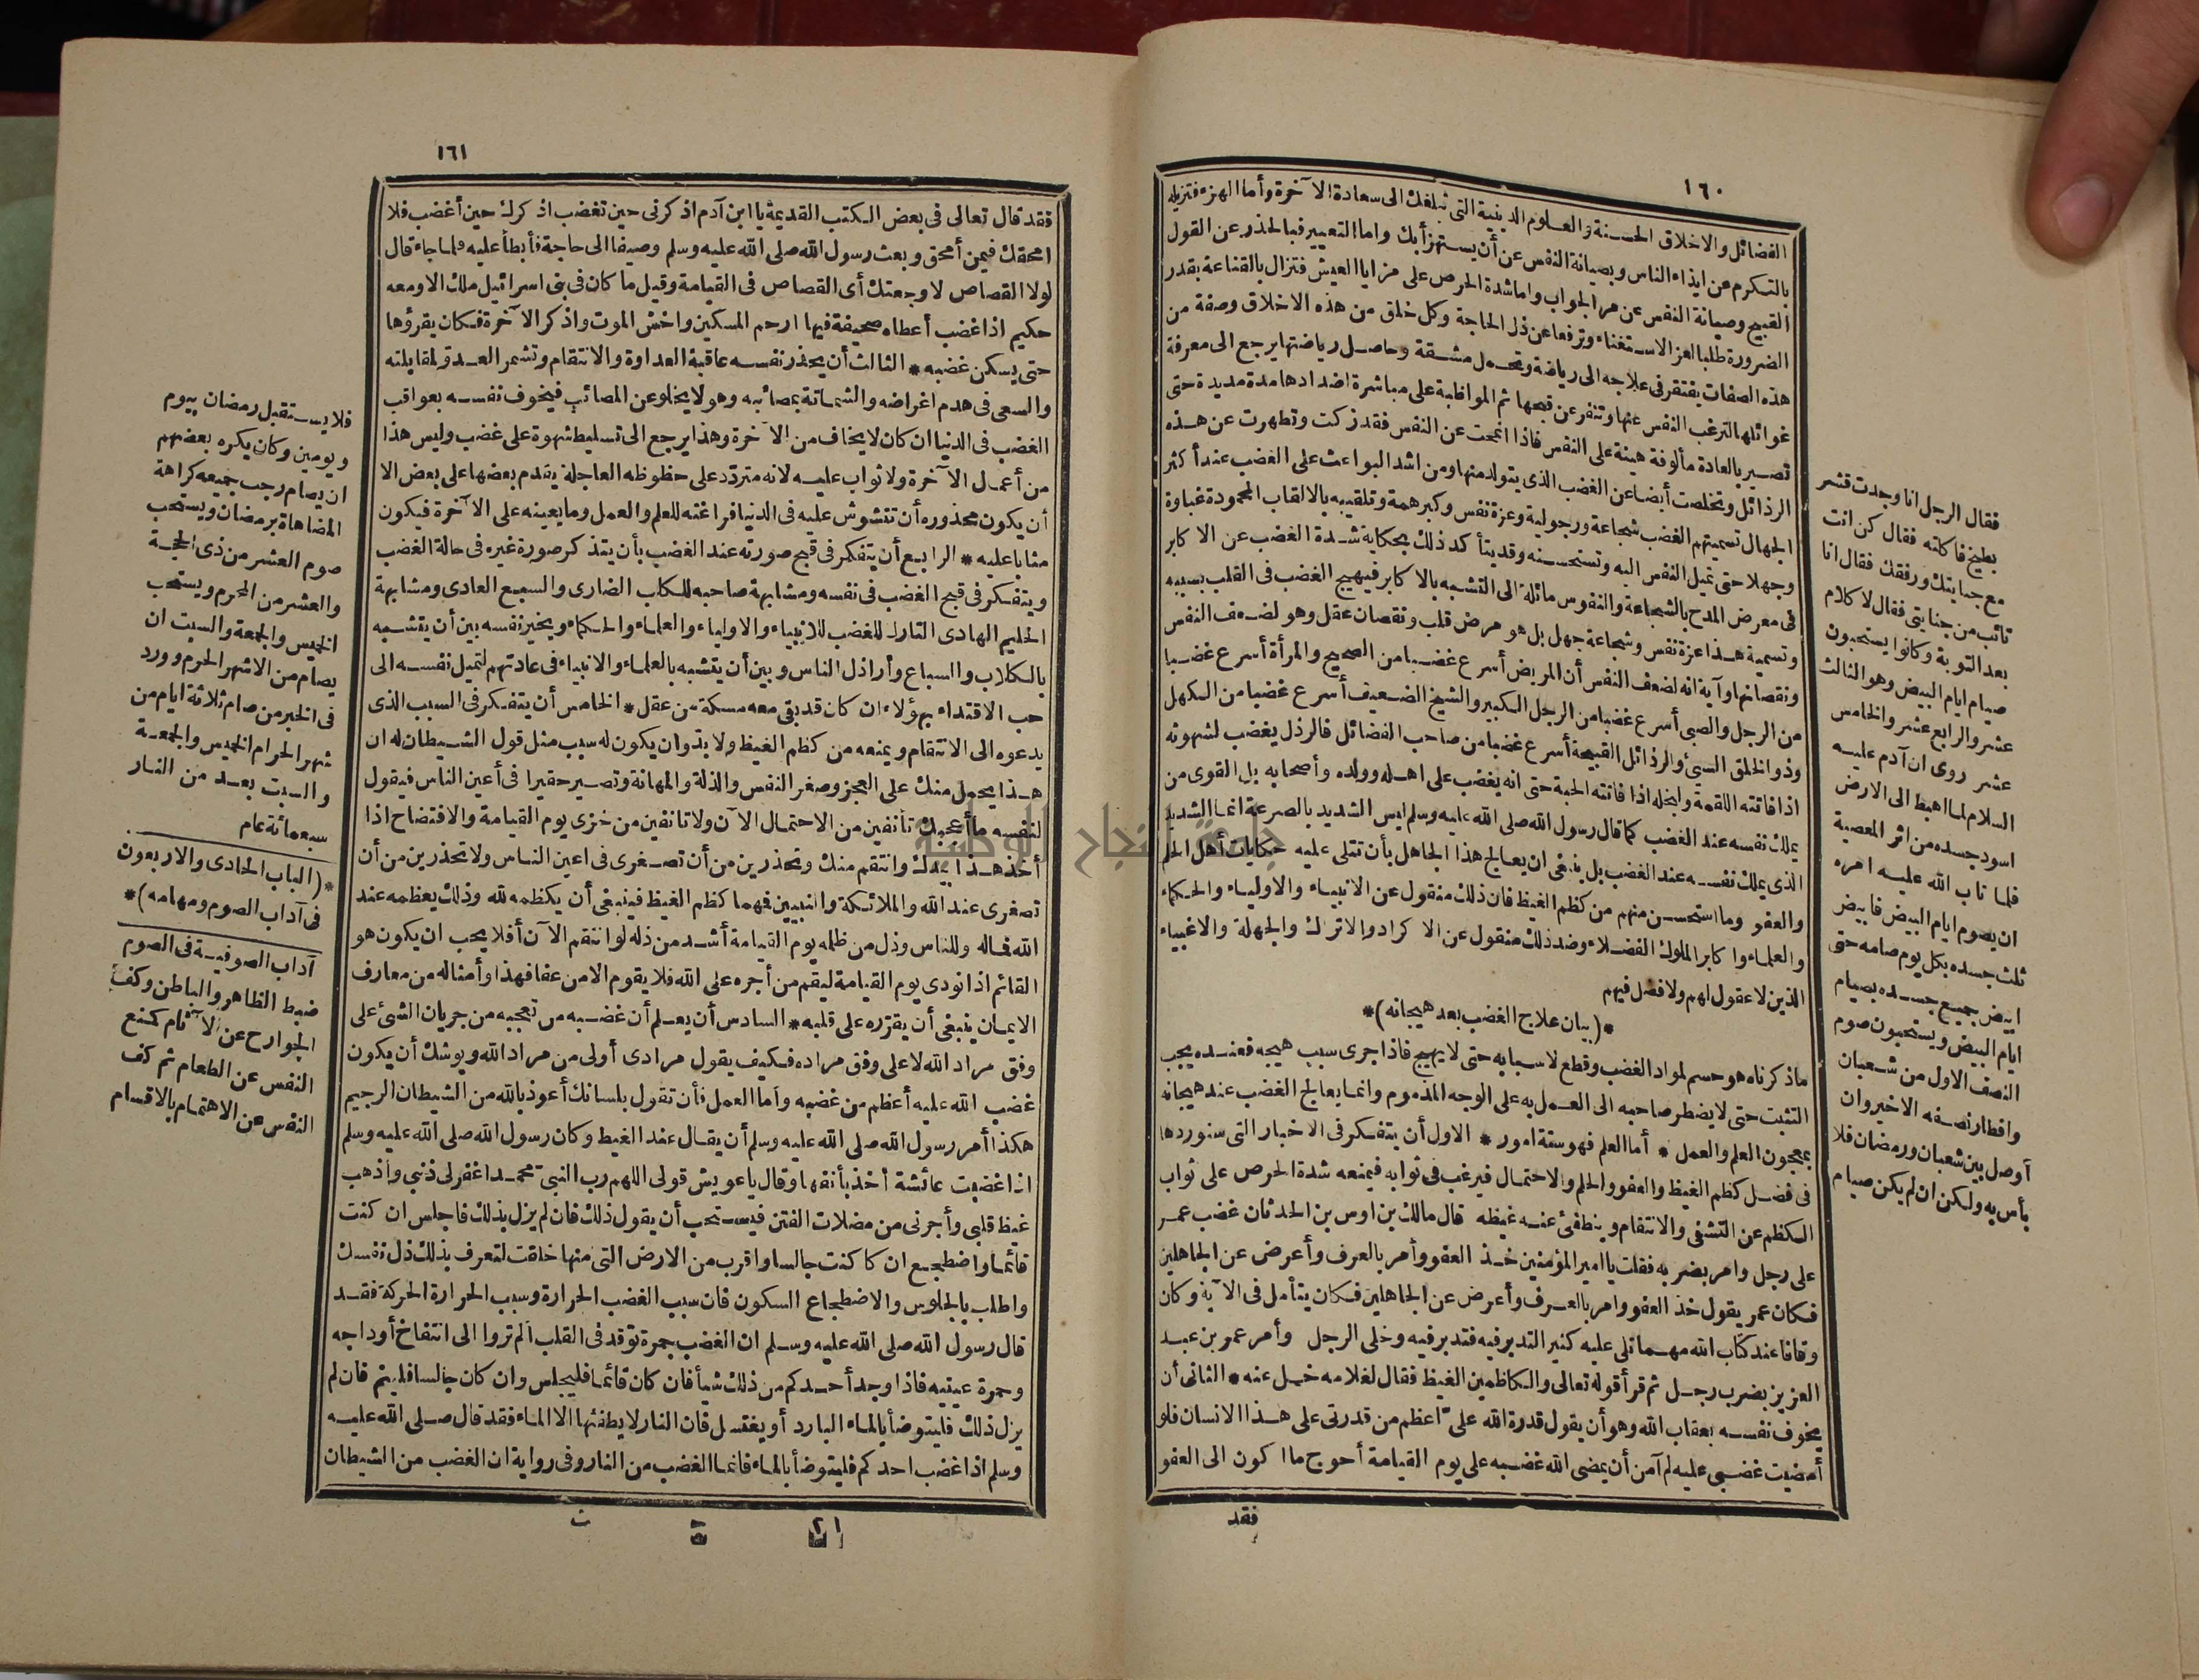 ١٦٠
الفضائل والاخلاق الحسنة والعلوم الدينية التى تبلغك الى سعادة الآخرة وأما الهزء فتزيله
بالتكرم عن ايذاء الناس وبصيانة النفس عن أن يستهزأ بك واما التعيير فبالحذر عن القول
القبيح وصيانة النفس عن مر الجواب واما شدة الحرص على مزايا العيش فتزال بالقناعة بقدر
الضرورة طلبا لعز الاستغناء وترفعا عن ذل الحاجة وكل خلق من هذه الاخلاق وصفة من
هذه الصفات يفتقر فى علاجه الى رياضة وتحمل مشقة وحاصل رياضتها يرجع الى معرفة
غوائلها لترغب النفس عنها وتنفر عن قبحها ثم المواظبة على مباشرة اضدادها مدة مديدة حتى
تصير بالعادة مألوفة هينة على النفس فاذا انمحت عن النفس فقد زكت وتطهرت عن هذه
الرذائل وتخلصت أيضا عن الغضب الذى يتولد منها ومن اشد البواعث على الغضب عند أكثر
الجهال تسميتهم الغضب شجاعة ورجولية وعزة نفس وكبر همة وتلقيبه بالالقاب المحمودة غباوة
وجهلا حتى تميل النفس اليه وتستحسنه وقد يتأكد ذلك بحكاية شدة الغضب عن الاكابر
فى معرض المدح بالشجاعة والنفوس مائلة الى التشبه بالاكابر فيهيج الغضب فى القلب بسببه
وتسمية هذا عزة نفس وشجاعة جهل بل هو مرض قلب ونقصان عقل وهو لضعف النفس
ونقصانها وآية انه لضعف النفس أن المريض أسرع غضبا من الصحيح والمرأة أسرع غضبا
من الرجل والصبى أسرع غضبا من الرجل الكبير والشيخ الضعيف أسرع غضبا من الكهل
وذو الخلق السيئ والرذائل القبيحة أسرع غضبا من صاحب الفضائل فالرذل يغضب لشهوته
اذا فاتته اللقمة ولبخله اذا فاتته الحبة حتى انه يغضب على اهله وولده وأصحابه بل القوى من
يملك نفسه عند الغضب كما قال رسول الله صلى الله عليه وسلم ليس الشديد بالصرعة انما الشديد
الذى يملك نفسه عند الغضب بل ينبغى ان يعالج هذا الجاهل بأن تتلى عليه حكايات أهل الحلم
والعفو وما استحسن منهم من كظم الغيظ فان ذلك منقول عن الانبياء والاولياء والحكماء
والعلماء واكابر الملوك الفضلاء وضد ذلك منقول عن الاكراد والاتراك والجهلة والاغبياء
الذين لا عقول لهم ولا فضل فيهم
*(بيان علاج الغضب بعد هيجانه)*
ماذكرناه هو حسم لمواد الغضب وقطع لاسبابه حتى لا يهيج فاذا جرى سبب هيجه فعنده يجب
التثبت حتى لا يضطر صاحبه الى العمل به على الوجه المذموم وانما يعالج الغضب عند هيجانه
بمعجون العلم والعمل * أما العلم فهو ستة امور * الاول أن يتفكر فى الاخبار التى سنوردها
فى فضل كظم الغيظ والعفو والحلم والاحتمال فيرغب فى ثوابه فيمنعه شدة الحرص على ثواب
الكظم عن التشفى والانتقام وينطفئ عنه غيظه قال مالك بن اوس بن الحدثان غضب عمر
على رجل وامر بضربه فقلت يا امير المؤمنين خذ العفو وأمر بالعرف وأعرض عن الجاهلين
فكان عمر يقول خذ العفو وامر بالعرف وأعرض عن الجاهلين فكان يتأمل فى الآية وكان
وقافا عند كتاب الله مهما تلى عليه كثير التدبر فيه فتدبر فيه وخلى الرجل وأمر عمر بن عبد
العزيز بضرب رجل ثم قرأ قوله تعالى والكاظمين الغيظ فقال لغلامه خل عنه * الثانى أن
يخوف نفسه بعقاب الله وهو أن يقول قدرة الله علىّ اعظم من قدرتى على هذا الانسان فلو
أمضيت غضبى عليه لم آمن أن يمضى الله غضبه على يوم القيامة أحوج ما اكون الى العفو
فقد
فقال الرجل انا وجدت قشر
بطيخ فاكلته فقال كن انت
مع جنايتك ورفقك فقال انا
تائب من جنايتى فقال لا كلام
بعد التوبة وكانوا يستحبون
صيام ايام البيض وهو الثالث
عشر والرابع عشر والخامس
عشر روى ان آدم عليه
السلام لما اهبط الى الارض
اسود جسده من اثر المعصية
فلما تاب الله عليه امره
ان يصوم ايام البيض فابيض
ثلث جسده بكل يوم صامه حتى
ابيض جميع جسده بصيام
ايام البيض ويستحبون صوم
النصف الاول من شعبان
وافطار نصفه الاخير وان
أوصل بين شعبان ورمضان فلا
بأس به ولكن ان لم يكن صيام
١٦١
فقد قال تعالى فى بعض الكتب القديمة يا ابن آدم اذكرنى حين تغضب اذكرك حين أغضب فلا
امحقك فيمن أمحق وبعث رسول الله صلى الله عليه وسلم وصيفا الى حاجة فأبطأ عليه فلما جاء قال
لولا القصاص لاوجعتك أى القصاص فى القيامة وقيل ما كان فى بنى اسرائيل ملك الا ومعه
حكيم اذا غضب أعطاه صحيفة فيها ارحم المسكين واخش الموت واذكر الآخرة فكان يقرؤها
حتى يسكن غضبه * الثالث أن يحذر نفسه عاقبة العداوة والانتقام وتشمر العدو لمقابلته
والسعى فى هدم اغراضه والشماتة بمصائبه وهو لا يخلو عن المصائب فيخوف نفسه بعواقب
الغضب فى الدنيا ان كان لا يخاف من الآخرة وهذا يرجع الى تسليط شهوة على غضب وليس هذا
من أعمال الآخرة ولا ثواب عليه لانه متردّد على حظوظه العاجلة يقدم بعضها على بعض الا
أن يكون محذوره أن تتشوش عليه فى الدنيا فراغته للعلم والعمل وما يعينه على الآخرة فيكون
مثابا عليه * الرابع أن يتفكر فى قبح صورته عند الغضب بأن يتذكر صورة غيره فى حالة الغضب
ويتفكر فى قبح الغضب فى نفسه ومشابهة صاحبه للكلب الضارى والسبع العادى ومشابهة
الحليم الهادى التارك للغضب للانبياء والاولياء والعلماء والحكماء ويخير نفسه بين أن يتشبه
بالكلاب والسباع وأراذل الناس وبين أن يتشبه بالعلماء والانبياء فى عادتهم لتميل نفسه الى
حب الاقتداء بهؤلاء ان كان قد بقى معه مسكة من عقل * الخامس أن يتفكر فى السبب الذى
يدعوه الى الانتقام ويمنعه من كظم الغيظ ولا بد وان يكون له سبب مثل قول الشيطان له ان
هذا يحمل منك على العجز وصغر النفس والذلة والمهانة وتصير حقيرا فى أعين الناس فيقول
لنفسه ما أعجبك تأنفين من الاحتمال الآن ولا تأنفين من خزى يوم القيامة والافتضاح اذا
أخذ هذا بيدك وانتقم منك وتحذرين من أن تصغرى فى اعين الناس ولا تحذرين من أن
تصغرى عند الله والملائكة والنبيين فهما كظم الغيظ فينبغى أن يكظمه لله وذلك يعظمه عند
الله فماله وللناس وذل من ظلمه يوم القيامة أشد من ذله لو انتقم الآن أفلا يحب ان يكون هو
القائم اذا نودى يوم القيامة ليقم من أجره على الله فلا يقوم الا من عفا فهذا وأمثاله من معارف
الايمان ينبغى أن يقرّره على قلبه * السادس أن يعلم أن غضبه من تعجبه من جريان الشئ على
وفق مراد الله لا على وفق مراده فكيف يقول مرادى أولى من مراد الله ويوشك أن يكون
غضب الله عليه أعظم من غضبه وأما العمل فأن تقول بلسانك أعوذ بالله من الشيطان الرجيم
هكذا أمر رسول الله صلى الله عليه وسلم أن يقال عند الغيظ وكان رسول الله صلى الله عليه وسلم
اذا غضبت عائشة أخذ بأنفها وقال يا عويش قولى اللهم رب النبىّ محمد اغفر لى ذنبى وأذهب
غيظ قلبى وأجرنى من مضلات الفتن فيستحب أن يقول ذلك فان لم يزل بذلك فاجلس ان كنت
قائما واضطجع ان كا كنت جالسا واقرب من الارض التى منها خلقت لتعرف بذلك ذل نفسك
واطلب بالجلوس والاضطجاع السكون فان سبب الغضب الحرارة وسبب الحرارة الحركة فقد
قال رسول الله صلى الله عليه وسلم ان الغضب جمرة توقد فى القلب ألم تروا الى انتفاخ أوداجه
وحمرة عينيه فاذا وجد أحدكم من ذلك شيأ فان كان قائما فليجلس وان كان جالسا فلينم فان لم
يزل ذلك فليتوضأ بالماء البارد أو يغتسل فان النار لا يطفئها الا الماء فقد قال صلى الله عليه
وسلم اذا غضب احدكم فليتوضأ بالماء فانما الغضب من النار وفى رواية ان الغضب من الشيطان
فلا يستقبل رمضان بيوم
ويومين وكان يكره بعضهم
ان يصام رجب جميعه كراهة
المضاهاة برمضان ويستحب
صوم العشر من ذى الحجة
والعشر من المحرم ويستحب
الخميس والجمعة والسبت ان
يصام من الاشهر الحرم وورد
فى الخبر من صام ثلاثة ايام من
شهر الحرام الخميس والجمعة
والسبت بعد من النار
سبعمائة عام
*(الباب الحادى والاربعون
فى آداب الصوم ومهامه)*
آداب الصوفية فى الصوم
ضبط الظاهر والباطن وكف
الجوارح عن الآثام كمنع
النفس عن الطعام ثم كف
النفس عن الاهتمام بالاقسام
جامعة النجاح الوطنية